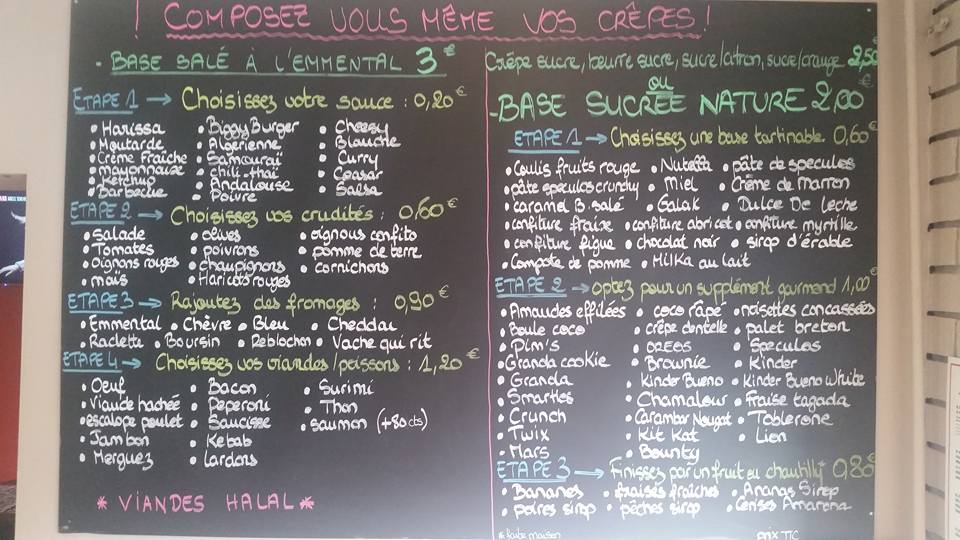 ! COMPOSEZ VOUS MÊME VOS CRÊPES !
- BASE SALÉ À L'EMMENTAL 3€
ETAPE 1 → Choisissez votre sauce : 0,20€
• Harissa • Biggy Burger • Cheesy
• Moutarde • Algérienne • Blanche
• Crème Fraîche • Samouraï • Curry
• mayonnaise • chili-thaï • Ceasar
• Ketchup • Andalouse • Salsa
• Barbecue • Poivre
ETAPE 2 → Choisissez vos crudités : 0,60€
• salade • olives • oignous confits
• Tomates • poivrons • pomme de terre
• Oignons rouges • champignons • cornichons
• maïs • Haricots rouges
ETAPE 3 → Rajoutez des fromages : 0,90€
• Emmental • Chèvre • Bleu • Cheddar
• Raclette • Boursin • Reblochon • Vache qui rit
ETAPE 4 → Choisissez vos viandes/poissons : 1,20€
• Oeuf • Bacon • Surimi
• Viande hachée • Peperoni • Thon
• escalope poulet • Saucisse • saumon (+80cts)
• Jambon • Kebab
• Merguez • lardons
* VIANDES HALAL *
Crêpe sucre, beurre sucre, sucre/citron, sucre/orange 2,50€
ou
- BASE SUCRÉE NATURE 2,00€
ETAPE 1 → Choisissez une base tartinable 0,60€
• Coulis fruits rouge • Nutella • pâte de speculos
• pâte speculos crunchy • Miel • Crème de marron
• caramel B. salé • Galak • Dulce De leche
• confiture fraise • confiture abricot • confiture myrtille
• confiture figue • chocolat noir • sirop d'érable
• Compote de pomme • Milka au lait
ETAPE 2 → Optez pour un supplément gourmand 1,00€
• Amandes effilées • coco râpé • noisettes concassées
• Boule coco • crêpe dentelle • palet breton
• Pim's • oreos • Speculos
• Granola cookie • Brownie • Kinder
• Granola • Kinder Bueno • Kinder Bueno White
• Smarties • Chamalow • Fraise tagada
• Crunch • Carambar Nougat • Toblerone
• Twix • Kit Kat • Lion
• Mars • Bounty
ETAPE 3 → Finissez par un fruit ou chantilly 0,80€
• Bananes • fraises fraîches • Ananas Sirop
• poires sirop • pêches sirop • Cerises Amarena
* faite maison prix TTC